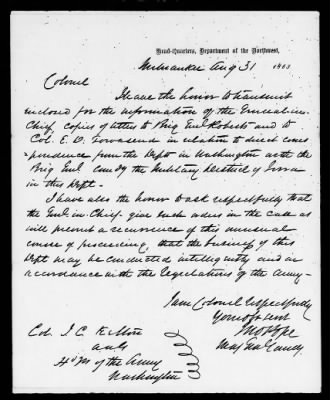 Head-Quarters, Department of the Northwest,
Milwaukee Aug 31 1863
Colonel
I have the honor to transmit
inclosed for the information of the General in
Chief, copies of letters to Brig Genl Roberts and to
Col. E. D. Townsend in relation to direct corres
-pondence from the Dept in Washington with the
Brig Genl comdg the Military District of Iowa
in this Dept -
I have also the honor to ask respectfully that
the Genl in Chief give such orders in the case as
will prevent a recurrence of this unusual
course of proceeding, that the business of this
Dept may be conducted intelligently and in
accordance with the Regulations of the Army -
I am Colonel respectfully
Your obt servt
Jno Pope
Maj Genl Comdg.
Col J. C. Kelton
A A G
Hd Qrs of the Army
Washington